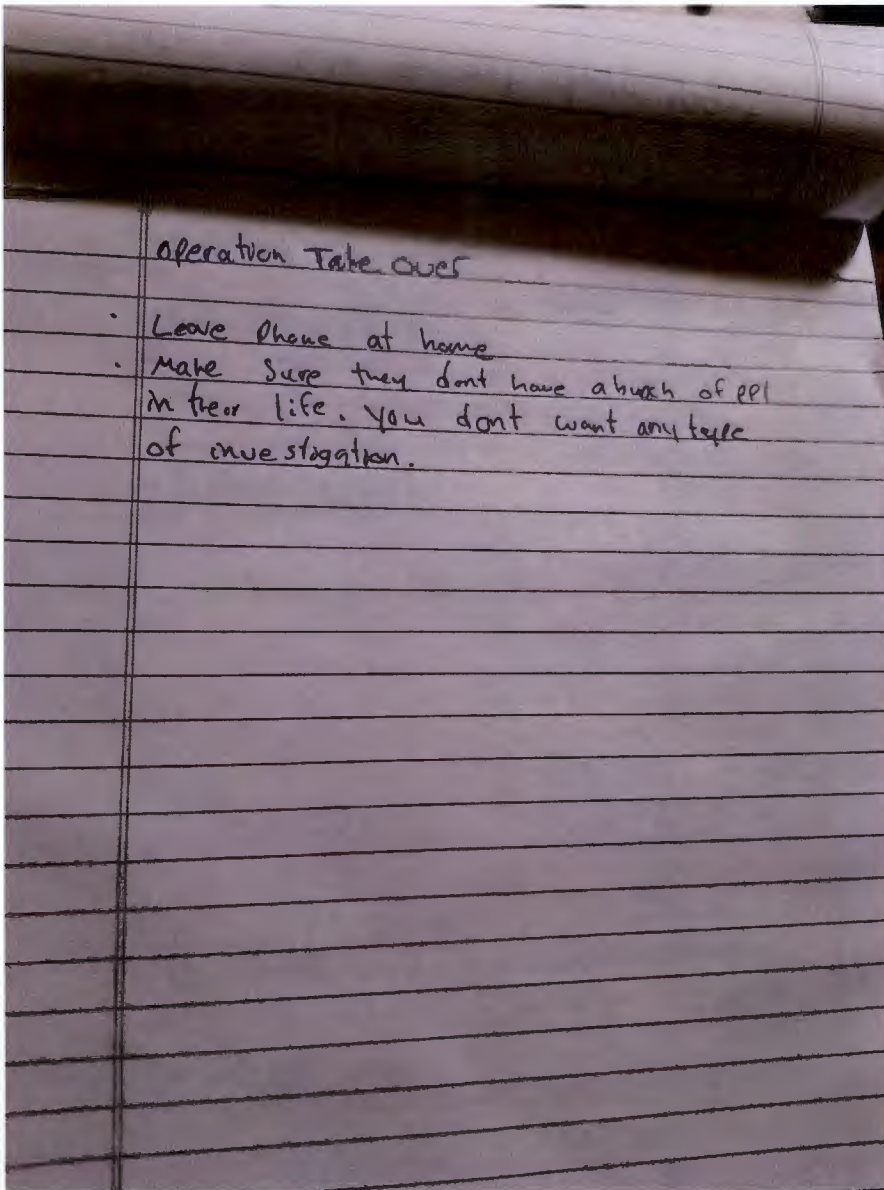 operation Take over
· Leave Phone at home
· Make Sure they dont have a bunch of ppl
in their life. You dont want any type
of investigation.